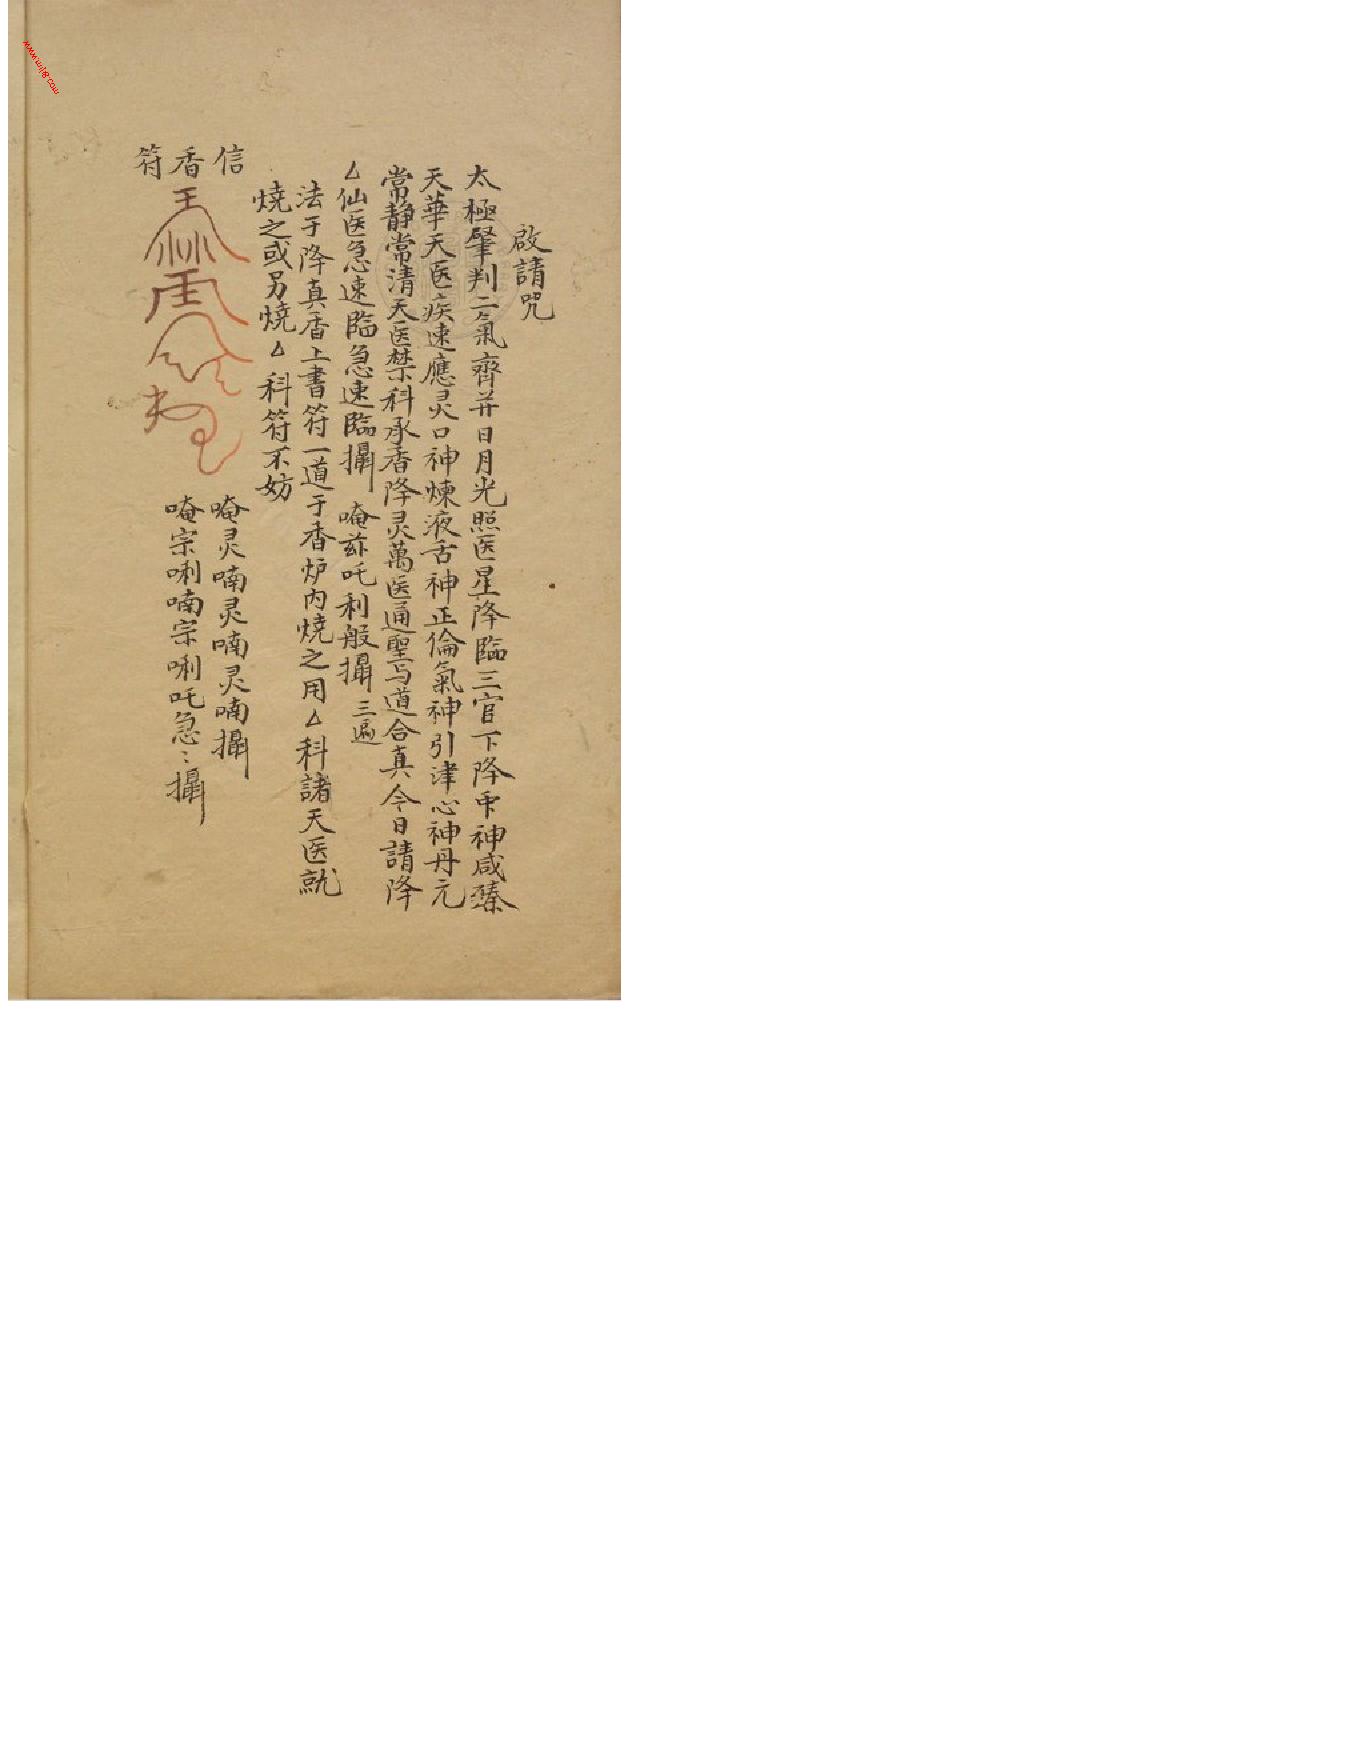 啟請咒
太極肇判二氣齊並日月光照医星降臨三官下降帀神咸臻
天華天医疾速應灵口神煉液舌神正倫氣神引津心神丹元
常靜常清天医禁科承香降灵萬医通聖与道合真今日請降
△仙医急速臨急速臨攝 唵㢤吒利般攝 三遍
法于降真香上書符一道于香炉内燒之用△科諸天医就
燒之或另燒△科符不妨
信香符
唵灵喃灵喃灵喃攝
唵宗唎喃宗唎吒急〻攝
www.mlj8.com